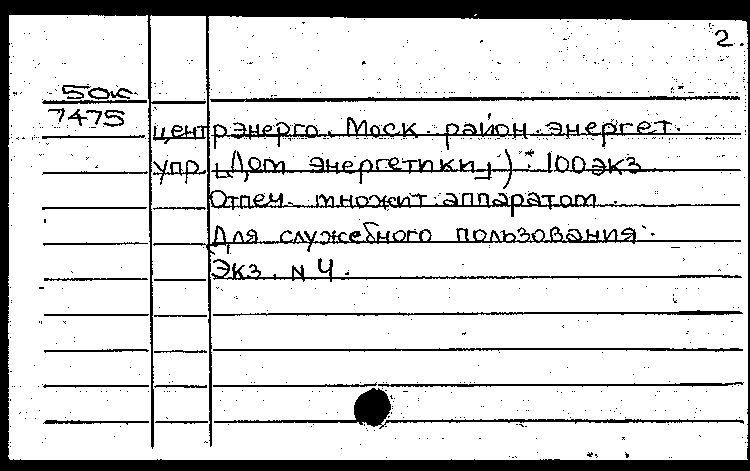 2.
50к
7475
центрэнерго. Моск. район. энергет.
упр. „Дом энергетики“). 100 экз
Отпеч. множит. аппаратом.
Для служебного пользования.
Экз. N 4.